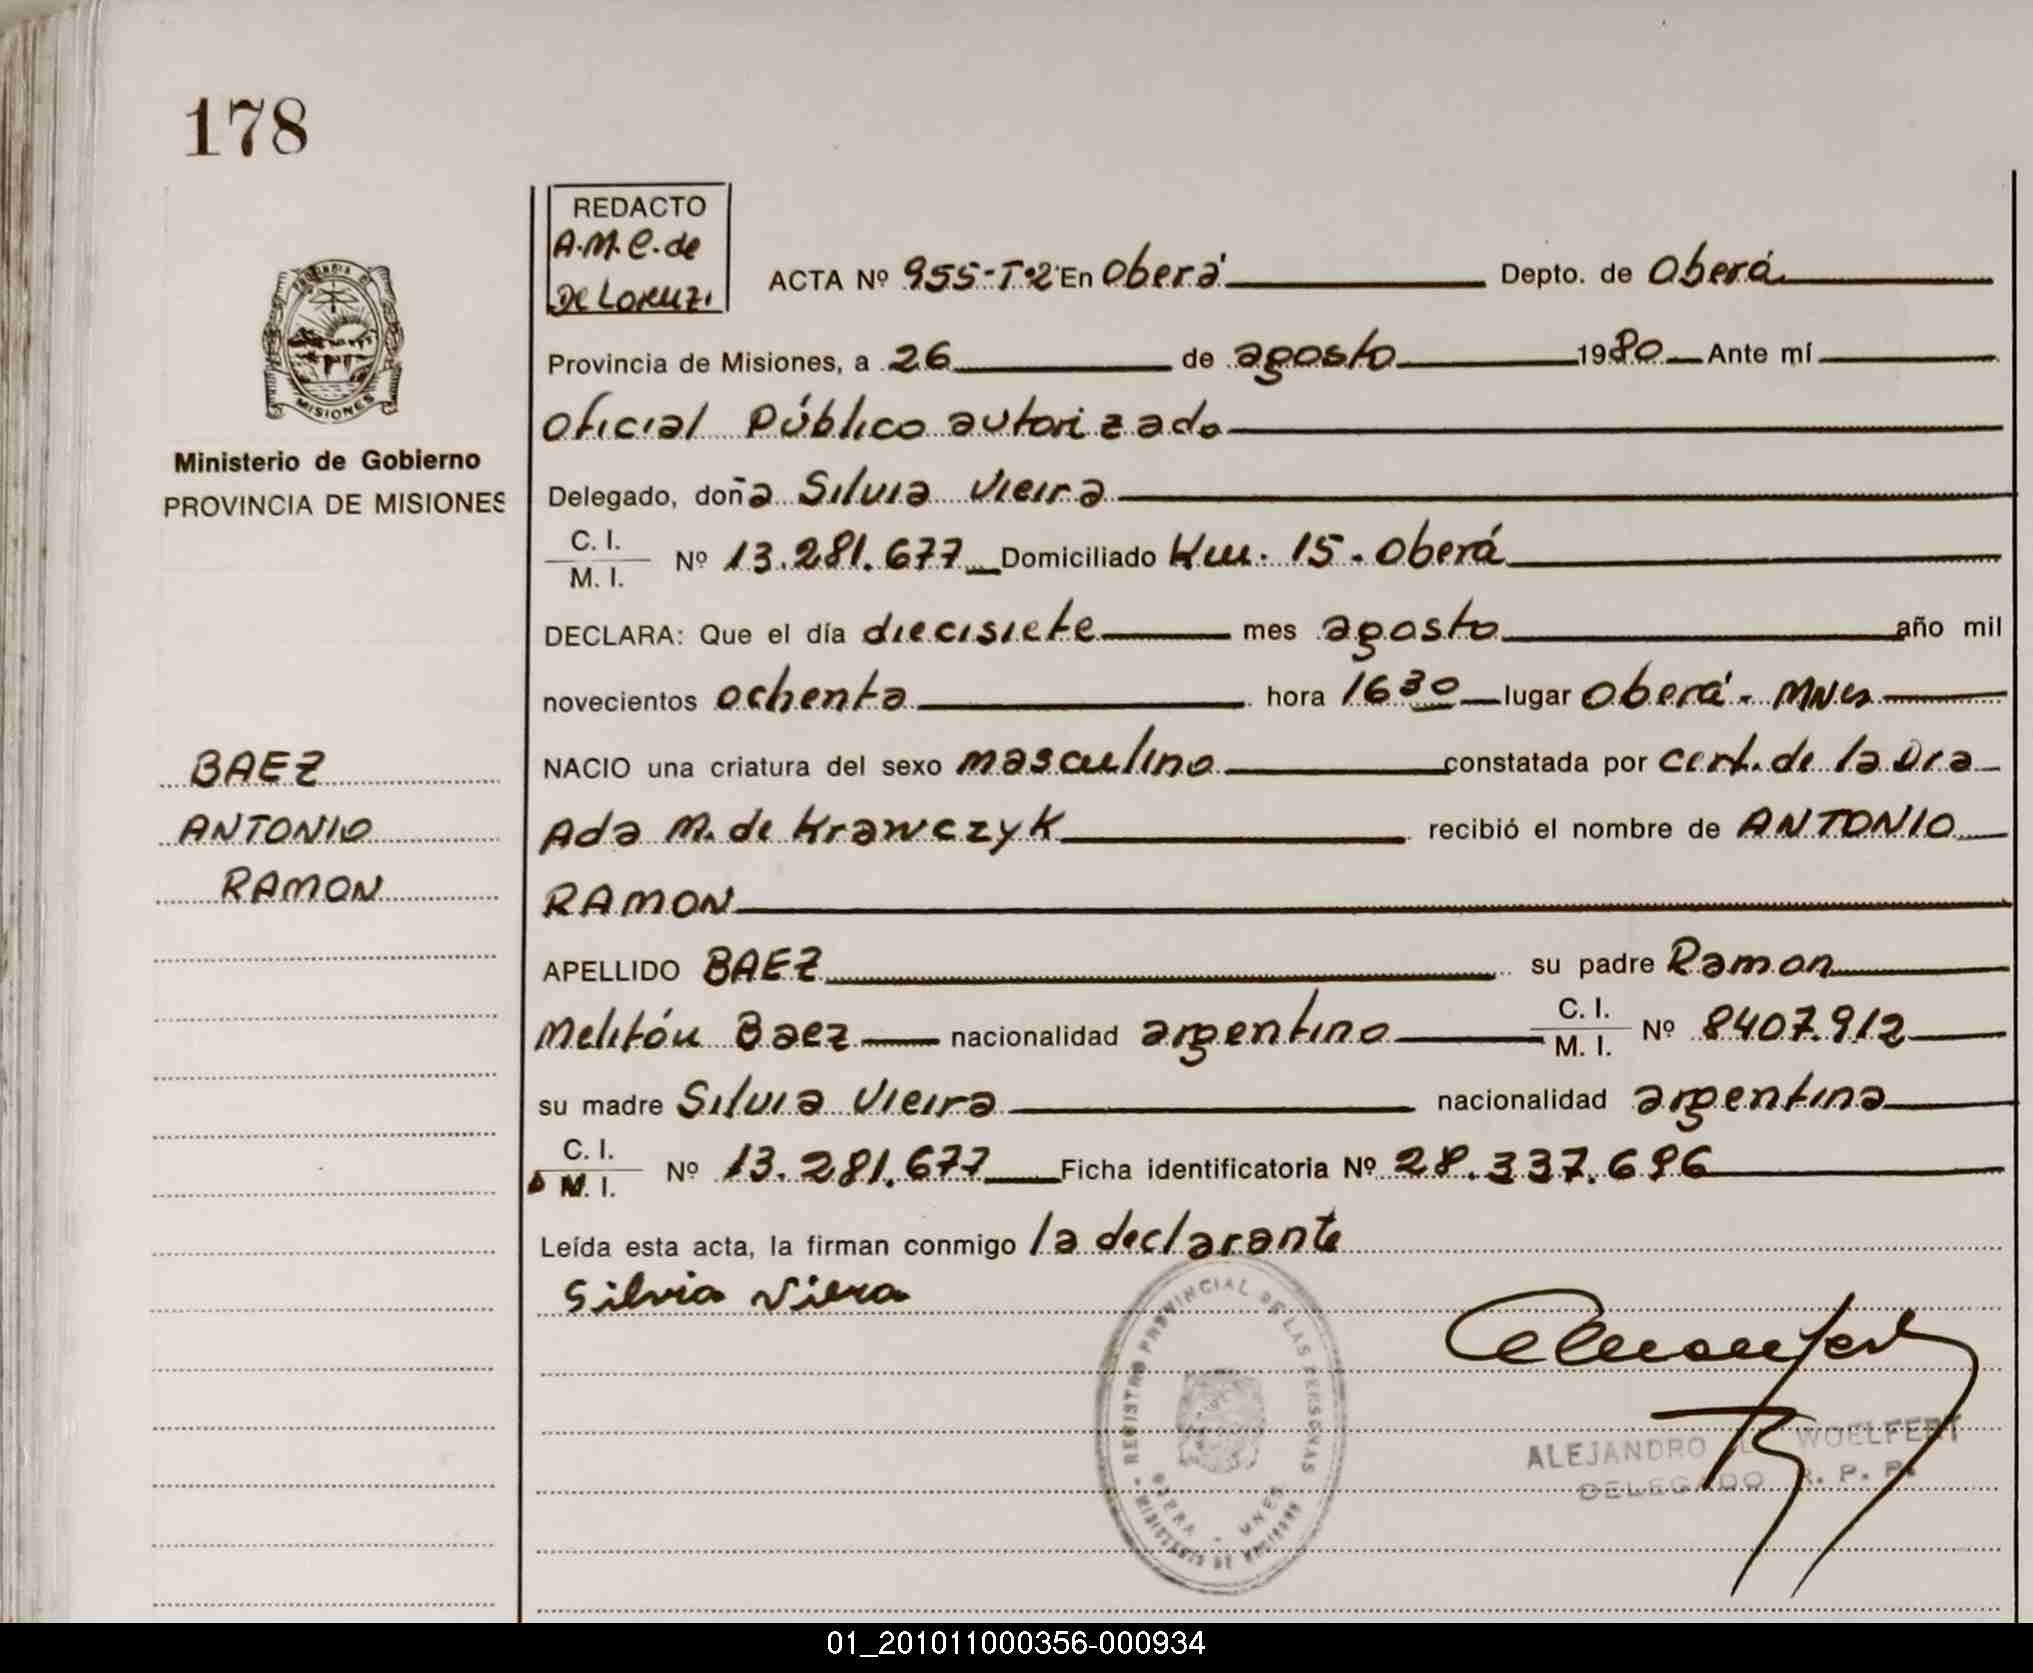 178
REDACTO
A.M.C. de
De Lorenzi
ACTA Nº 955-Tº2 En Oberá Depto. de Oberá
Provincia de Misiones, a 26 de agosto 1980 Ante mí
Oficial Público autorizado
MISIONES
Ministerio de Gobierno
PROVINCIA DE MISIONES
Delegado, doña Silvia Vieira
C. I.
M. I. Nº 13.281.677 Domiciliado Km. 15 - Oberá
DECLARA: Que el día diecisiete mes agosto año mil
novecientos ochenta hora 16 30 lugar Oberá - Mnes
BAEZ
ANTONIO
RAMON
NACIO una criatura del sexo masculino constatada por cert. de la Dra
Ada M. de Krawczyk recibió el nombre de ANTONIO
RAMON
APELLIDO BAEZ su padre Ramon
Melitón Baez nacionalidad argentino C. I. M. I. Nº 8407.912
su madre Silvia Vieira nacionalidad argentina
C. I.
M. I. Nº 13.281.677 Ficha identificatoria Nº 28.337.696
Leída esta acta, la firman conmigo la declarante
Silvia Viera
REGISTRO PROVINCIAL DE LAS PERSONAS
OBERA - MNES
ALEJANDRO WOELFERT
DELEGADO R. P. P.
01_201011000356-000934